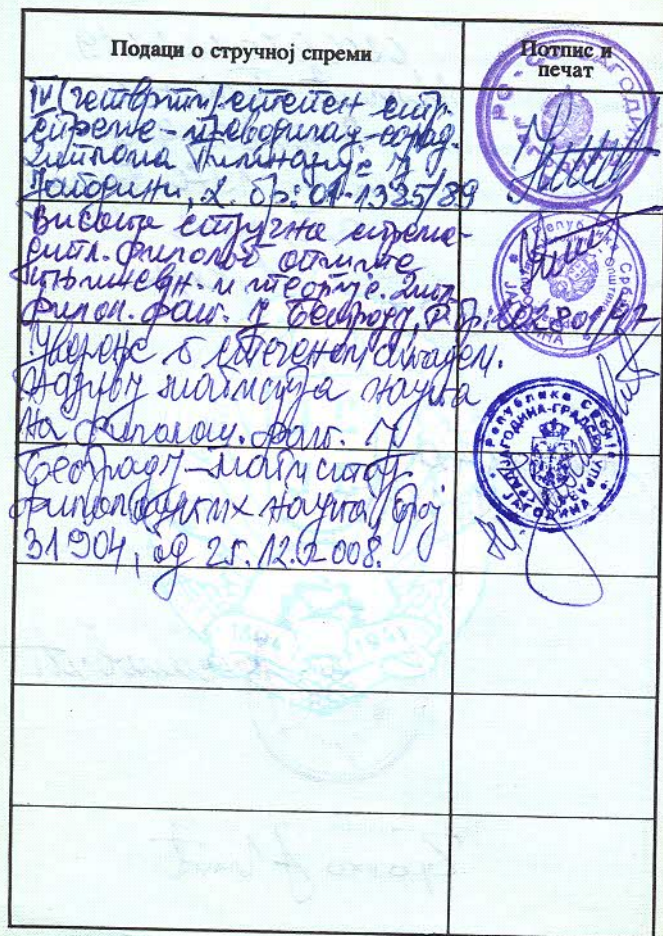 Подаци о стручној спреми
Потпис и
печат
IV (четврти) степен стр.
спреме - преводилац - сарад.
диплома Гимназије у
Јагодини, д. бр: 01-1335/89
Висока стручна спрема-
дипл. филолог опште
књижевн. и теорије. Дип.
филол. фак. у Београду,
Уверење о стеченом академ.
називу магистра наука
на филолош. фак. у
Београду - магистар
филолошких наука, број
31904, од 25.12.2008.
Република Србија
ЈАГОДИНА
Република Србија
ЈАГОДИНА-ГРАДСКА
УПРАВА
ЈАГОДИНА